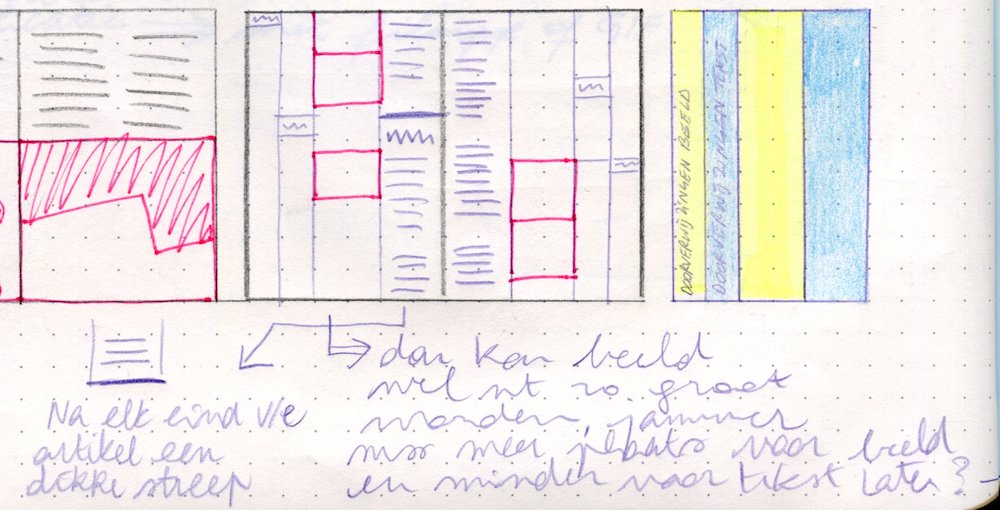 DOORVERWIJZINGEN BEELD
DOORVERWIJZINGEN TEKST
Na elk eind v/e
artikel een
dikke streep
dan kan beeld
wel nt zo groot
worden, jammer
mss meer plaats voor beeld
en minder voor tekst laten?